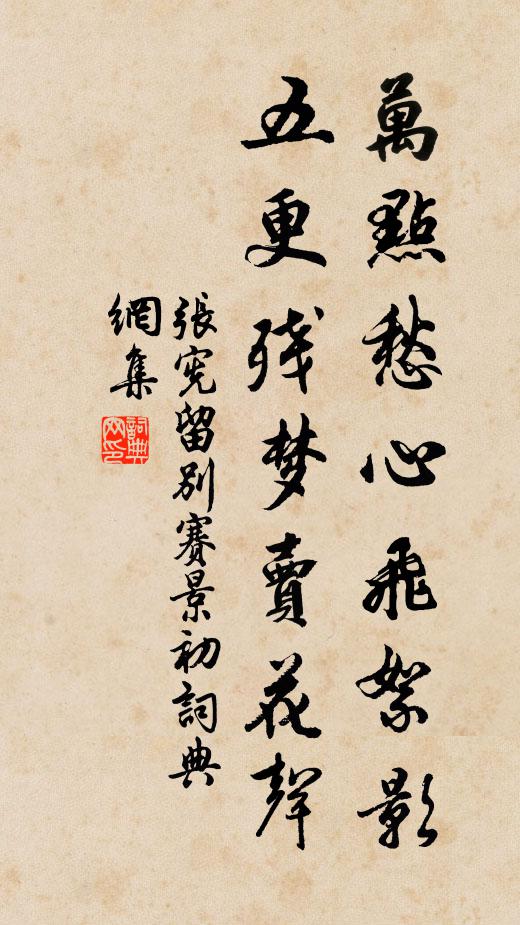 萬點愁心飛絮影
五更残梦賣花聲
張宪留别賽景初詞典
網集
詞典網印